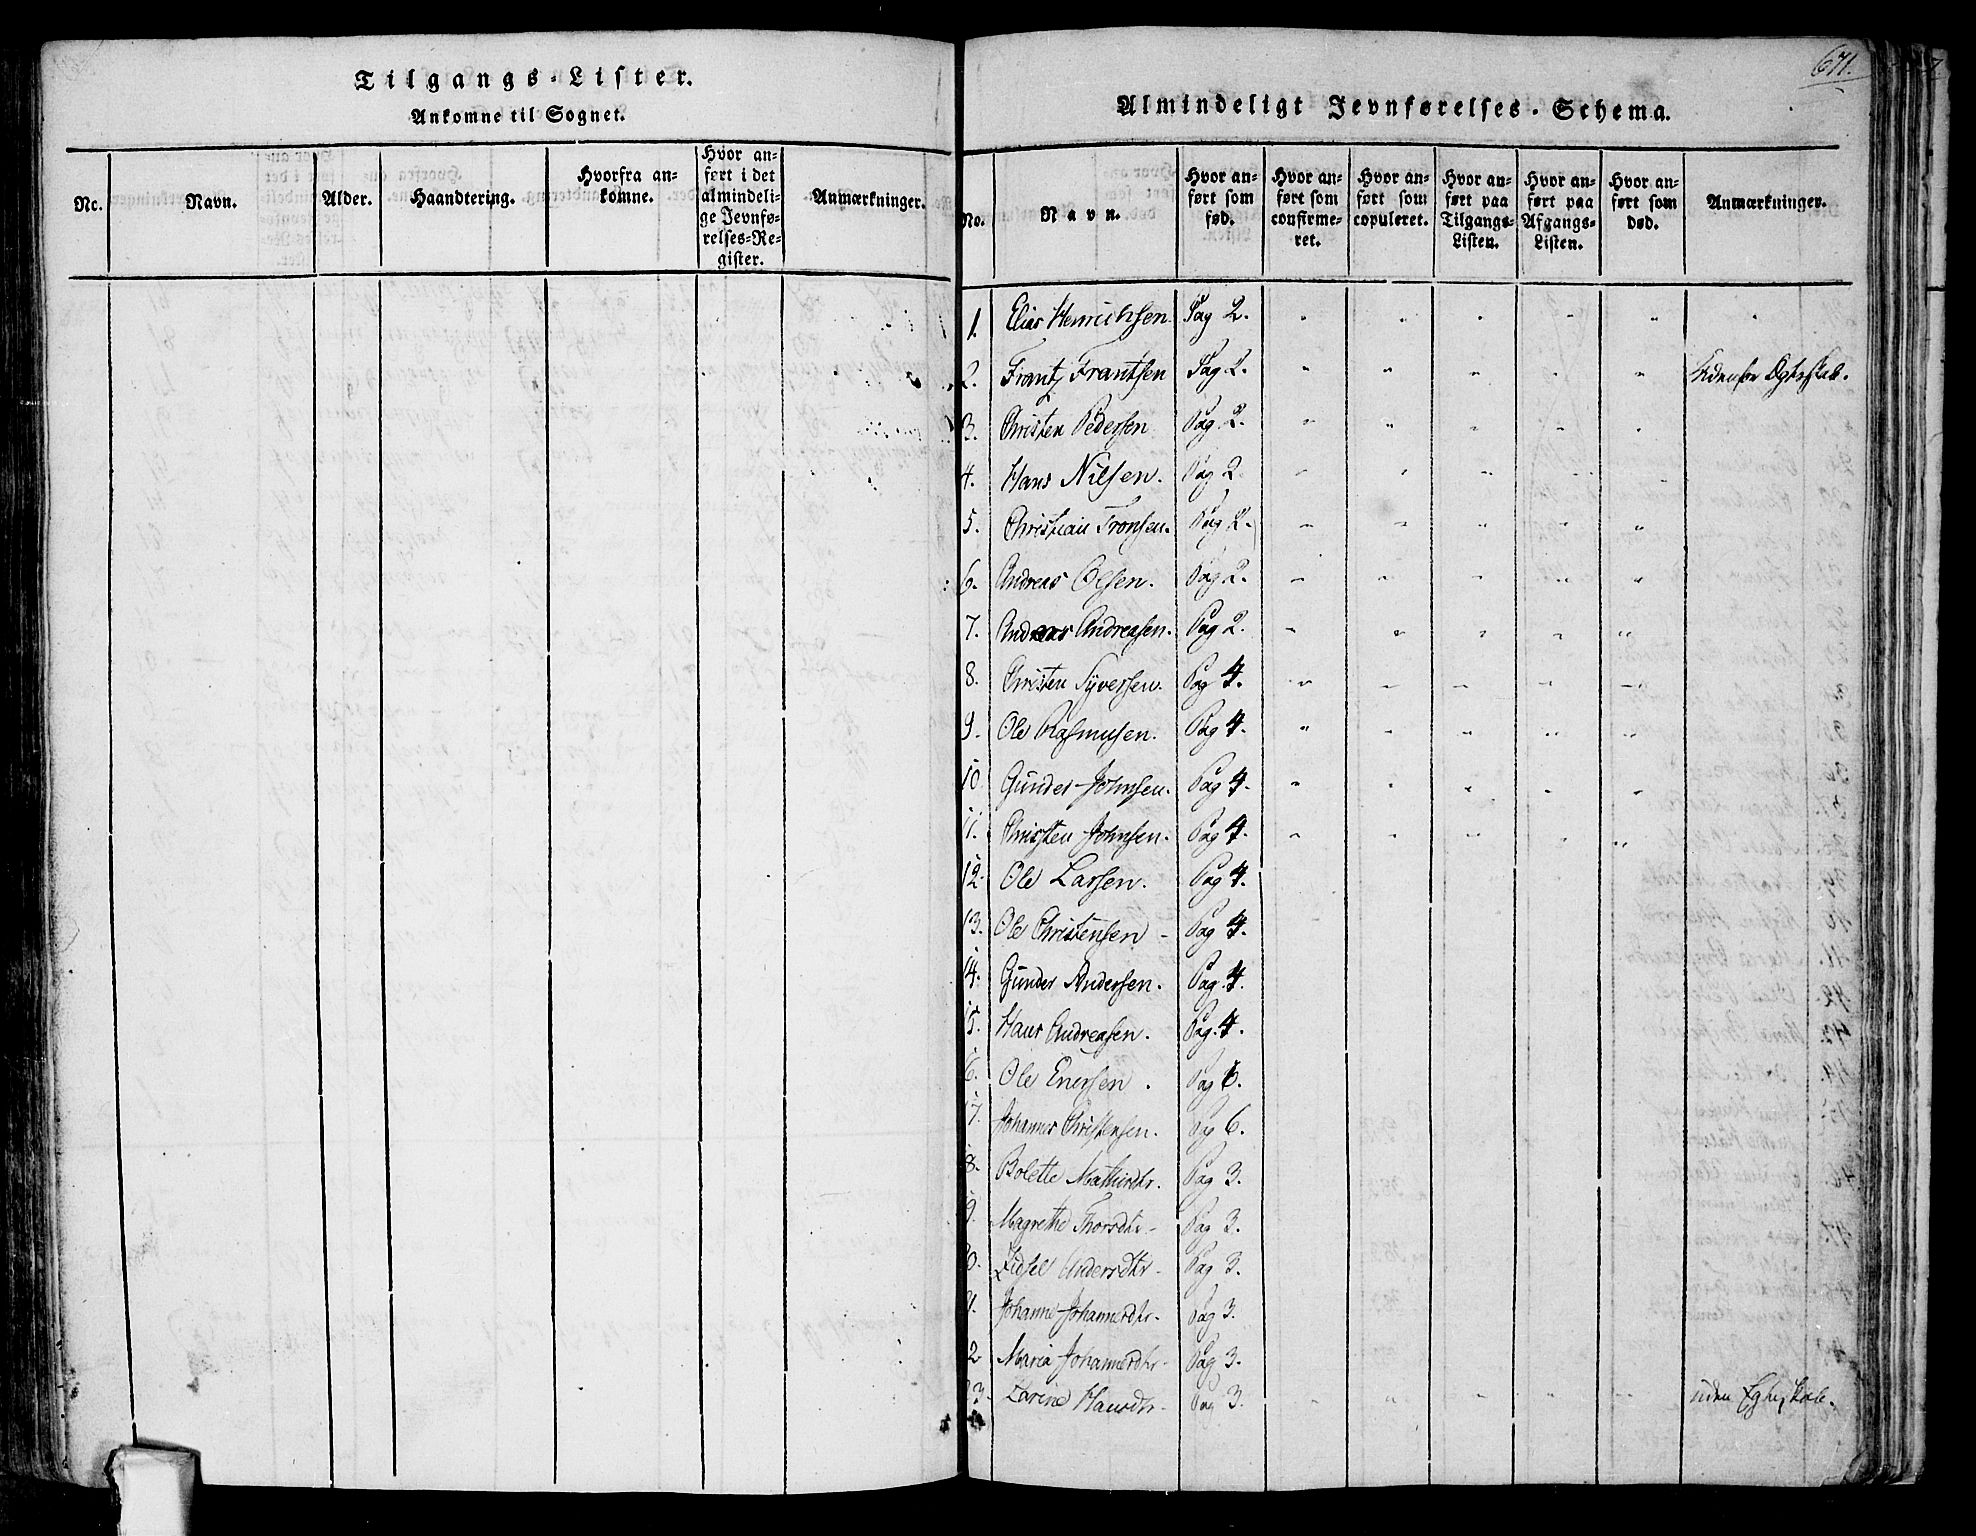 Tilgangs-Lister.
Ankomne til Sognet.
No.
Navn.
Alder.
Haandtering.
Hvorfra an-
komne.
Hvor an-
ført i det
almindeli-
ge Jevnfø-
relses-Re-
gister.
Anmærkninger.
671.
Almindeligt Jevnførelses-Schema.
No.
Navn.
Hvor an-
ført som
fød.
Hvor an-
ført som
confirme-
ret.
Hvor an-
ført som
copuleret.
Hvor an-
ført paa
Tilgangs-
Listen.
Hvor an-
ført paa
Afgangs-
Listen.
Hvor an-
ført som
død.
Anmærkninger.
1. Elias Henrichsen Pag 2.
2. Frantz Frantsen Pag 2. Udenfor Ægteskab.
3. Christen Pedersen Pag 2.
4. Hans Nilsen. Pag 2.
5. Christian Tronsen. Pag 2.
6. Andreas Olsen. Pag 2.
7. Andreas Andreasen. Pag 2.
8. Christen Syversen. Pag 4.
9. Ole Rasmusen. Pag 4.
10. Gunder Johnsen. Pag 4.
11. Christen Johnsen. Pag 4.
12. Ole Larsen. Pag 4.
13. Ole Christensen Pag 4.
14. Gunder Andersen. Pag. 4.
15. Hans Andreasen. Pag. 4.
6. Ole Enersen. Pag 6.
17. Johannes Christensen. Pag 6.
8. Bolette Mathisdtr. Pag 3.
9. Magrethe Thorsdtr. Pag 3.
0. Zidsel Andersdtr. Pag 3.
1. Johanne Johannesdtr. Pag 3.
2 Maria Johannesdtr. Pag 3.
3. Karine Hansdtr. Pag 3. uden Egteskab.